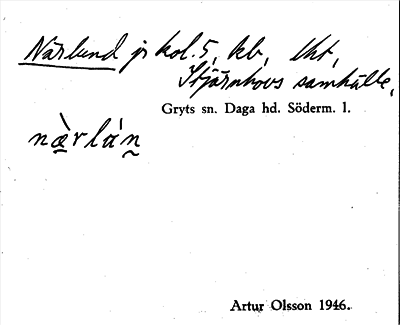 Närlund jr kol. 5, kb, lht,
Stjärnhovs samhälle,
Gryts sn. Daga hd. Söderm. l.
næ̀rlán̠
Artur Olsson 1946.